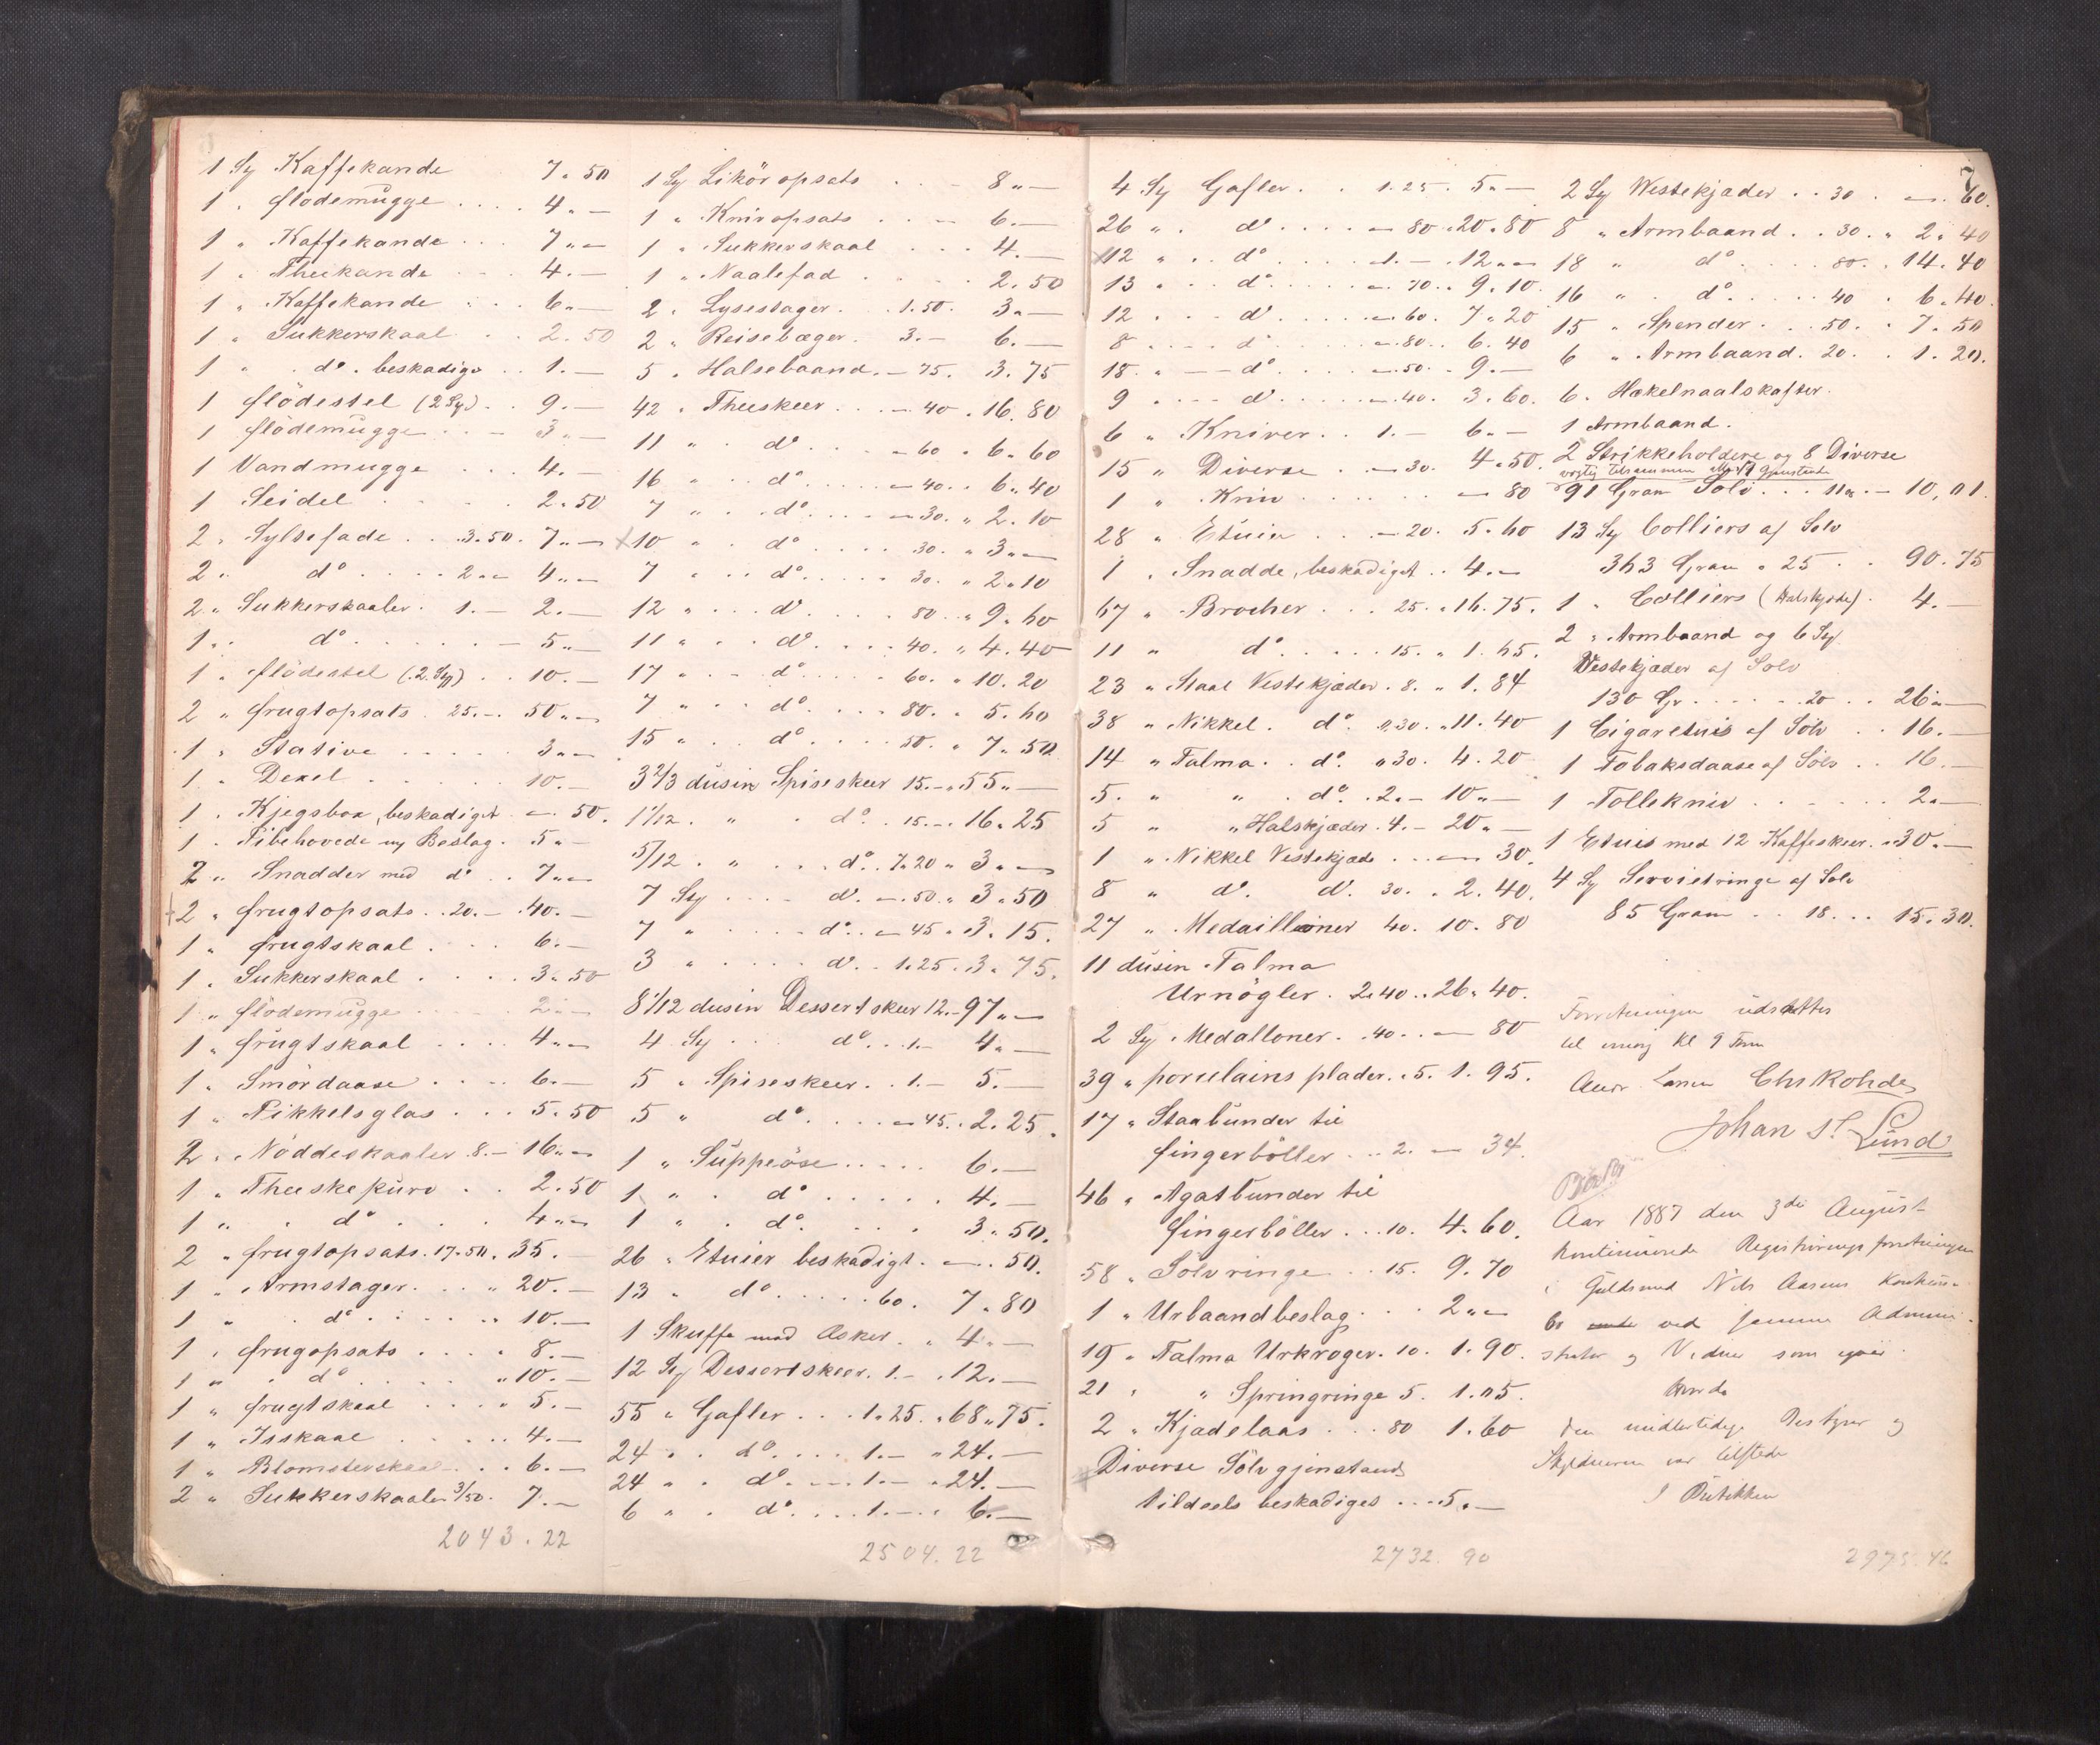 1 Sy Kaffekande 7.50
1 " flödemugge .... 4."—
1 " Kaffekande ... 7."—
1 " Theekande ... 4.—
1 " Kaffekande ... 6"—
1 " Sukkerskaal .. 2.50
1 " d°. beskadige .. 1.—
1 flödestel (2 Sy) .. 9.—
1 flödemugge ... 3"—
1 Vandmugge ... 4.—
1 Seidel .... 2.50
2 " Syltefade .. 3.50. 7"—
2 " d° .... 2"— 4"—
2 " Sukkerskaaler. 1.— 2.—
1 " d° ...... 5"—
1 " flödestel (2. Sy) .. 10.—
2 " frugtopsats. 25.—. 50"—
1 " Stative ..... 3"—
1 " Dexel ..... 10.—
1 " Kjegsbox, beskadiget — 50.
1 " Pibehovede m/ Beslag. 5"—
2 " Snadder med d° .. 7"—
+2 " frugtopsats .. 20.— .40.—
1 " frugtskaal .... 6.—
1 " Sukkerskaal .... 3.50
1 " flödemugge .... 2"—
1 " frugtskaal .... 4"—
1 " Smördaase .... 6.—
1 " Pikkelsglas ... 5.50
2 " Nöddeskaaler .8.— 16"—
1 " Theeskekurv .. 2.50
1 " . d° .... 4"—
2 " frugtopsats. 17.50. 35.—
1 " Armstager ... " 20.—
1 " . d° ..... " 10.—
1 " frugopsats .... " 8.—
1 " . d° .... " 10.—
1 " frugtskaal .... " 5.—
1 " Isskaal ..... 4.—
1 " Blomsterskaal ... 6.—
2 " Sukkerskaaler 3/50. 7.—
2043.22
1 Sy Likör opsats ... 8"—
1 " Knivopsats ... 6.—
1 " Sukkerskaal ... 4.—
1 " Naalefad .... 2.50
2 " Lysestager .. 1.50. 3"—
2 " Reisebæger. 3.— 6.—
5 " Halsebaand.— 75. 3.75
42 " Theeskeer ... — 40 . 16.80
11 " . d° ... — 60 " 6.60
16 " .. d° .... — 40 .. 6.40
7 " .. d° ... — 30. " 2.10
x10 " .. d° .... 30. " 3"—
7 " .. d° .... 30. " 2.10
12 " ... d° .... 80 .. 9.60
11 " .. d° ... 40. " 4.40
17 " .. d° ... 60. " 10.20
7 " .. d° ... 80. " 5.60
15 " .. d° .... 50. " 7.50
3 2/3 dusin Spiseskeer 15.— " 55"—
1 1/12 . " . d° .. 15.—. 16.25
5/12 . " ... d° . 7.20 " 3"—
7 Sy .... d° . — 50. " 3.50
7 " .... d° .. — 45 " 3.15.
3 " .... d° .. 1.25. 3.75.
8 1/12 dusin Dessertskeer 12.— 97"—
4 Sy ... d° .. 1.— 4"—
5 " Spiseskeer .. 1.— 5.—
5 " d° .... — 45. . 2.25.
1 " Suppeöse ..... 6.—
1 " . d° ..... 4.—
1 " . d° .... 3.50.
26 " Etuier beskadigt. —. 50.
13 " d° ..... 60. 7.80
1 Skuffe med Æsker. " 4"—
12 Sy Dessertskeer. 1.— " 12.—
55 " Gafler ... 1.25. " 68"75.
24 " . d° ... 1.— " 24.—
24 " . d° ... 1.— . 24.—
6 " . d° ... 1.—. 6.—
2504.22
4 Sy Gafler .. 1.25. 5"—
26 " . d° .... — 80 . 20.80
x12 " .. d° .... 1.— . 12"—
13 " .. d° ..... — 70 .. 9.10.
12 " ... d° ..... — 60. 7.20
8 .... d° .... — 80 .. 6.40
18. " — — d° .... — 50. . 9.—
9 " — — d° .... — 40. 3.60.
6 " Kniver .. 1.— 6"—
15 " Diverse . . — 30. 4.50.
1 " Kniv ...... — 80
28 " Etuier .. — 20. 5.60
1 " Snadde, beskadiget .. 4.—
67 " Brocher ... 25. " 16.75.
11 " d° ..... 15. " 1.65.
23 " Staal Vestekjæder. 8. " 1.84
38 " Nikkel. d°. " 30. " 11.40
14 " Talma .. d° " 30. 4.20
5. " " . d° .. 2.— 10"—
5 " " Halskjæder. 4.— 20"—
1 " Nikkel Vestekjæde ... — 30.
8 " d°. d°. 30. . 2.40.
27 " Medaillioner 40. 10.80
11 dusin Talma
Urnögler. 2.40 .. 26.40.
2 Sy. Medalloner. .40 .. — 80
39 " porcelains plader. . 5. 1.95.
17 " Staabunder til
fingerböller ... 2. — 34.
46 " Agatbunder til
fingerböller ... 10. 4.60.
58 " Sölvringe .. 15. 9.70
1 " Urbaandbeslag ... 2"—
19 " Talma Urkroger. 10. 1.90.
21 " " Springringe 5. 1.05.
2 " Kjædelaas ... 80 1.60
Diverse Sölvgjenstande
tildeels beskadiges ... 5.—
2732.90
7
2 Sy Westekjæder .. 30 . —. 60.
8 " Armbaand .. 30. " 2.40
18 " d° .... 80. . 14.40
16 " . d° ..... 40 . 6.40.
15 " Spender ... 50. . 7.50
6 " Armbaand. 20. . 1.20.
6 " Hækelnaalskafter.
1 Armbaand.
2 Strikkeholdere og 8 Diverse
tilsammen
91 Gram Sölv ... 11". — 10,01.
13 Sy Colliers af Sølv
363 Gram " 25 .. 90.75
1 " Colliers (Halskjæde). 4.—
2 " Armbaand og 6 Sy
Vestekjæder af Solv
130 Gr ...... 20 .. 26"—
1 Cigaretuis af Sölv .. 16.—
1 Tobaksdaase af Sölv .. 16.—
1 Tollekniv ...... 2"—
1 Etuis med 12 Kaffeskeer. " 30.—
4 Sy Servietringe af Solv
85 Gram .. 18 ... 15.30.
Forretningen udsættes
til imorg Kl 9 Form
Chs Rohde
Johan St Lund
Aar 1887 den 3die August
kontinuerede Registreringsforretningen
i Guldsmed Nils Aasens Konkurs-
bo ved samme Admini-
strator og Vidner som igaar.
den midlertidige Bestyrer og
Skyldneren var tilstede
I Butikken
2975.46